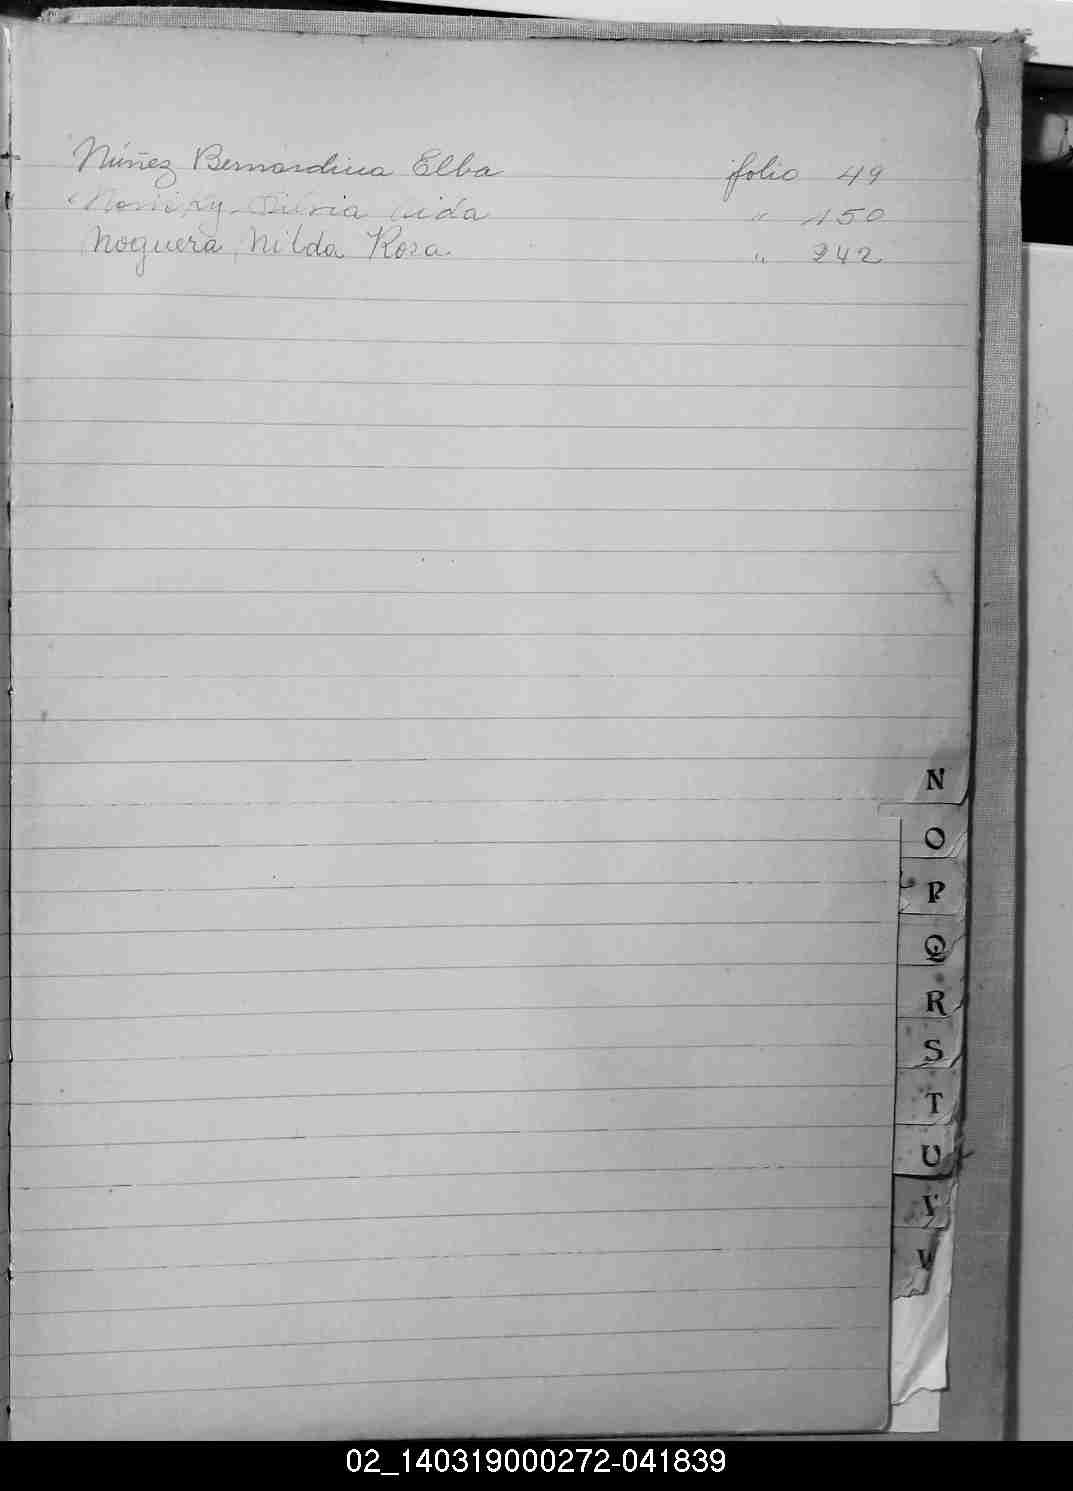 Núñez Bernardina Elba folio 49
Aida " 150
Noguera, Nilda Rosa. " 242
N
O
P
Q
R
S
T
U
V
W
02_140319000272-041839